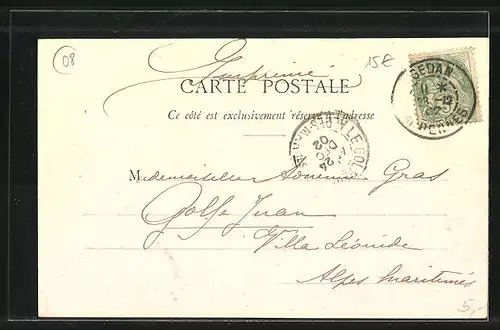 08
15€
Imprimé
CARTE POSTALE
Ce côté est exclusivement réservé à l'adresse
SEDAN
11 *
23 -12
02
ARDENNES
LE GOLFE
24
DEC
02
Mademoiselle Gras
Golfe Juan
Villa Léonide
Alpes Maritimes
5,-